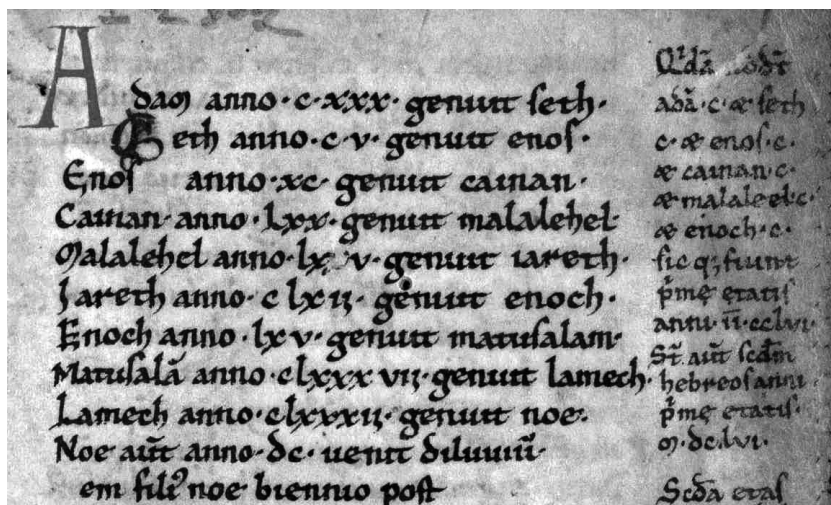 Adam anno·c·xxx· genuit seth·
Seth anno·c·v· genuit enos·
Enos anno·xc· genuit cainan·
Cainan· anno·lxx· genuit malalehel·
Malalehel anno·lx v· genuit iareth·
Jareth anno·c lxii· genuit enoch·
Enoch anno·lxv· genuit matusalam·
Matusalā anno·clxxxvii· genuit lamech·
Lamech anno·clxxxii· genuit noe·
Noe aūt anno·dc· uenit diluuiū·
em filiꝰ noe biennio post
adā·c·æ seth
c·æ enos·c·
æ cainan·c·
æ malaleel·c·
æ enoch·c·
sic qꝫ fiunt
p̄mę etatis
anni·īī·cclvi·
St̄ aūt scdm̄
hebreos anni
p̄mę etatis·
m·dclvi·
Scdā etas